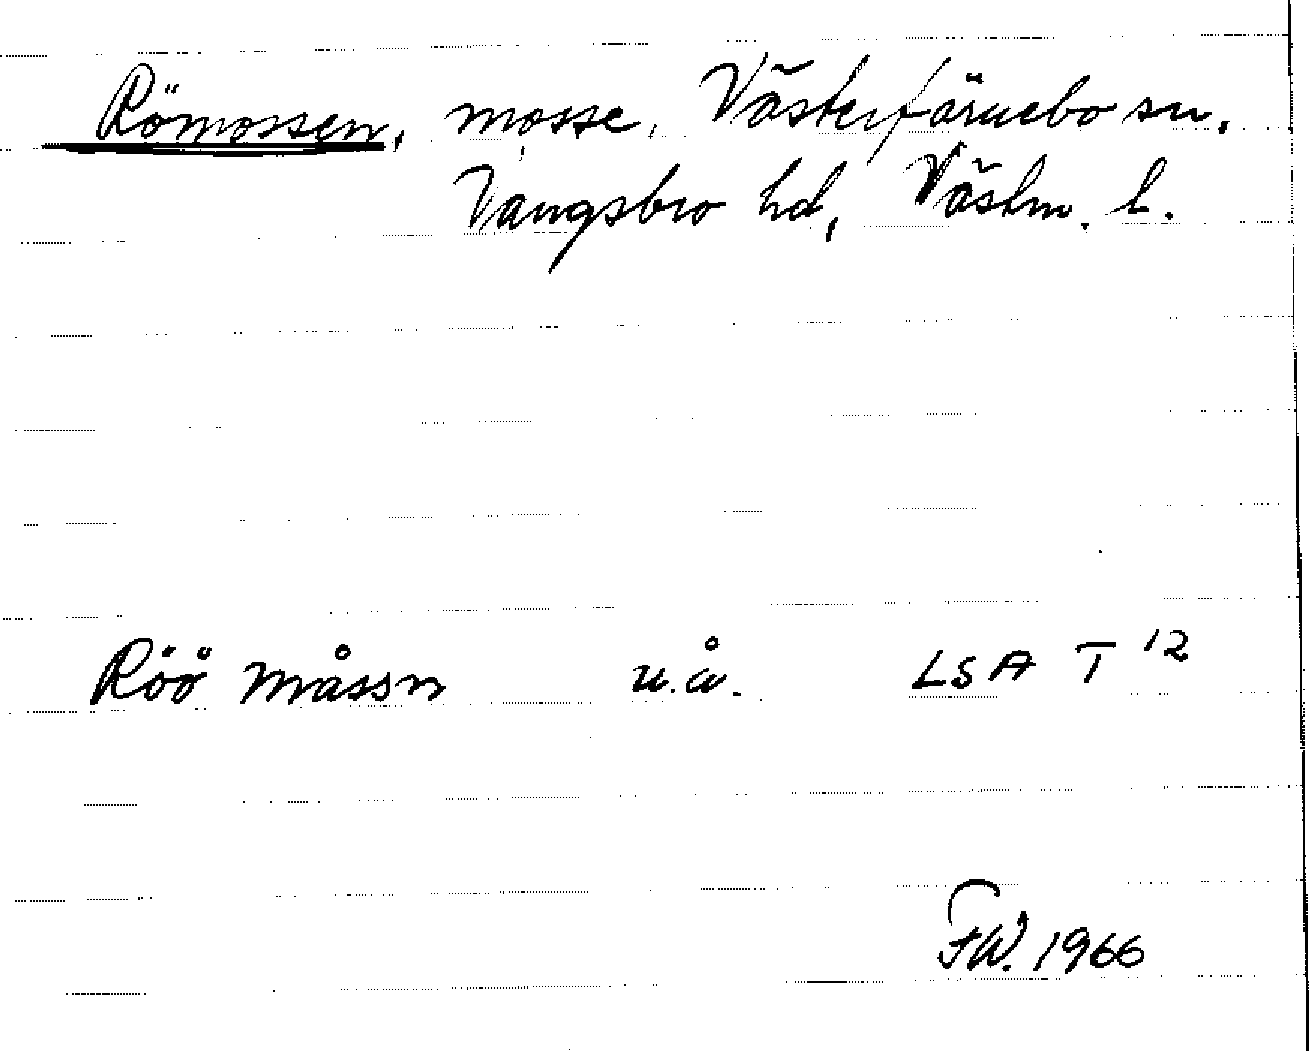 Römossen, mosse, Västerfärnebo sn.
Vangsbro hd, Västm. l.
Röö måssn u.å. LSA T 12
FW. 1966